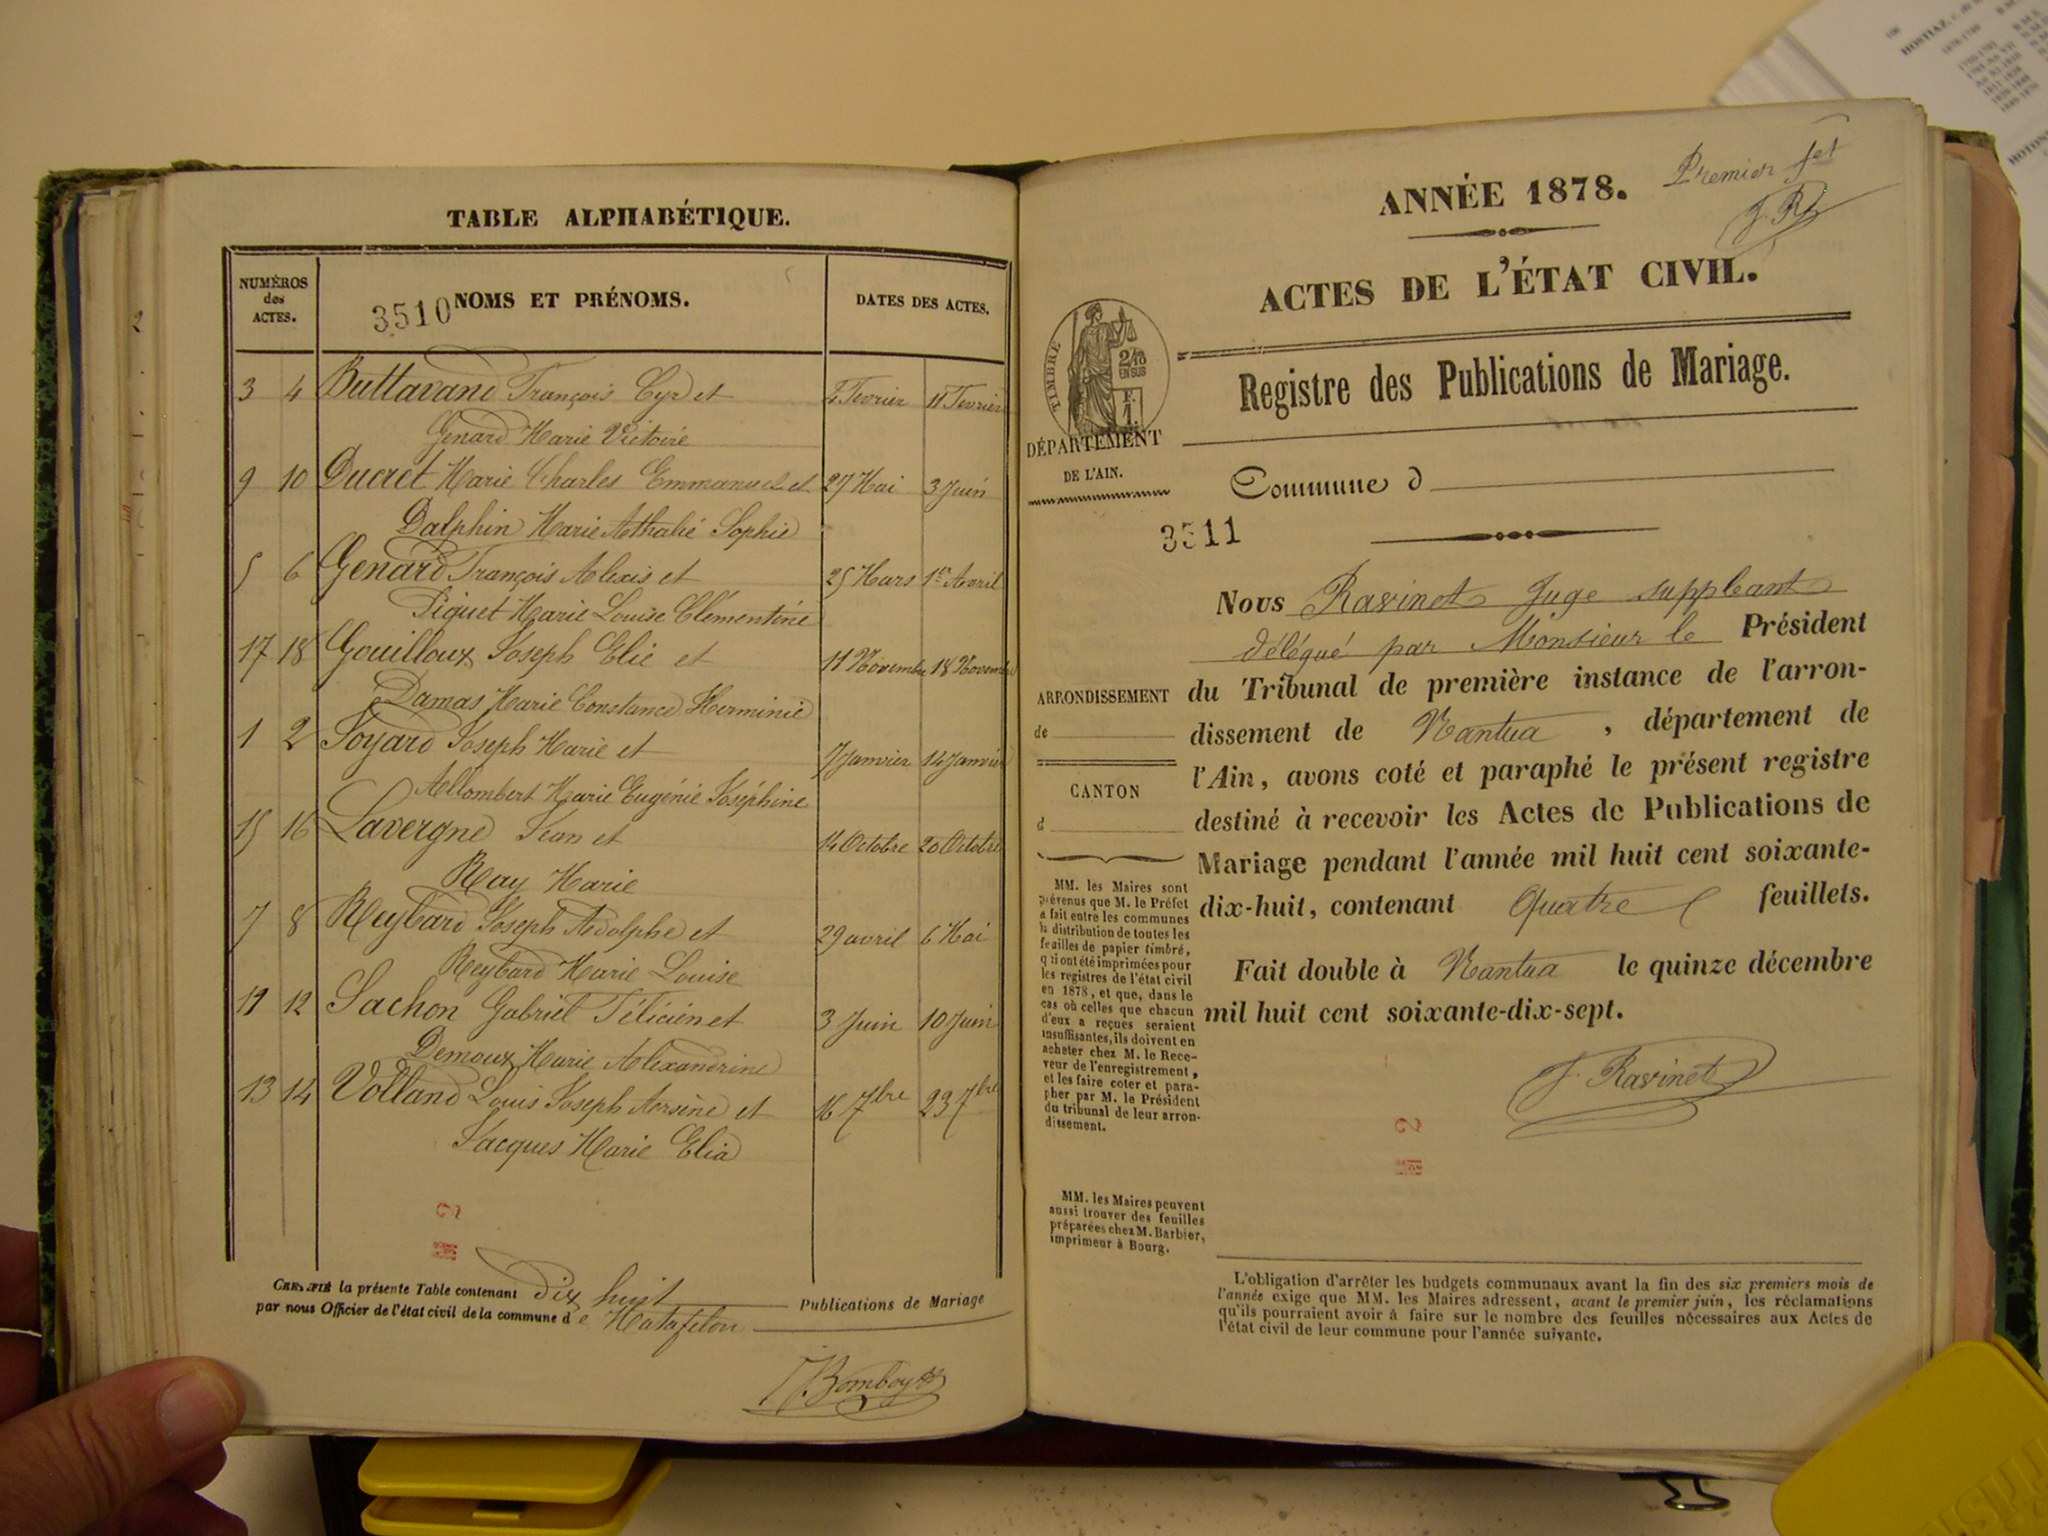 TABLE ALPHABÉTIQUE.
NUMÉROS
des
ACTES.
3510 NOMS ET PRÉNOMS.
DATES DES ACTES.
3 4 Buttavand François Cyr et 4 Fevrier 11 Fevrier
Genard Marie Victoire
9 10 Ducret Marie Charles Emmanuel et 27 Mai 3 Juin
Dalphin Marie Athalie Sophie
5 6 Genard François Alexis et 25 Mars 1er Avril
Piquet Marie Louise Clémentine
17 18 Gouilloux Joseph Elie et 11 Novembre 18 Novembre
Damas Marie Constance Herminie
1 2 Joyard Joseph Marie et 7 Janvier 14 Janvier
Allombert Marie Eugénie Joséphine
15 16 Lavergne Jean et 14 Octobre 20 Octobre
Ray Marie
7 8 Reybard Joseph Adolphe et 29 avril 6 Mai
Reybard Marie Louise
11 12 Sachon Gabriel Félicien et 3 Juin 10 Juin
Demoux Marie Alexandrine
13 14 Volland Louis Joseph Arsène et 16 7bre 23 7bre
Jacques Marie Elia
2
CERTIFIÉ la présente Table contenant Dix huit Publications de Mariage
par nous Officier de l'état civil de la commune de Matafelon
Bomboy
Premier fet
J. R
ANNÉE 1878.
ACTES DE L'ÉTAT CIVIL.
TIMBRE
2/10
EN SUS
F.
1.
Registre des Publications de Mariage.
DÉPARTEMENT
DE L'AIN.
Commune d
3511
Nous Ravinet Juge suppleant
délégué par Monsieur le Président
du Tribunal de première instance de l'arron-
dissement de Nantua, département de
l'Ain, avons coté et paraphé le présent registre
destiné à recevoir les Actes de Publications de
Mariage pendant l'année mil huit cent soixante-
dix-huit, contenant Quatre feuillets.
Fait double à Nantua le quinze décembre
mil huit cent soixante-dix-sept.
J. Ravinet
2
ARRONDISSEMENT
de
CANTON
d
MM. les Maires sont
prévenus que M. le Préfet
a fait entre les communes
la distribution de toutes les
feuilles de papier timbré,
qui ont été imprimées pour
les registres de l'état civil
en 1878, et que, dans le
cas où celles que chacun
d'eux a reçues seraient
insuffisantes, ils doivent en
acheter chez M. le Rece-
veur de l'enregistrement,
et les faire coter et para-
pher par M. le Président
du tribunal de leur arron-
dissement.
MM. les Maires peuvent
aussi trouver des feuilles
préparées chez M. Barbier,
imprimeur à Bourg.
L'obligation d'arrêter les budgets communaux avant la fin des six premiers mois de
l'année exige que MM. les Maires adressent, avant le premier juin, les réclamations
qu'ils pourraient avoir à faire sur le nombre des feuilles nécessaires aux Actes de
l'état civil de leur commune pour l'année suivante.